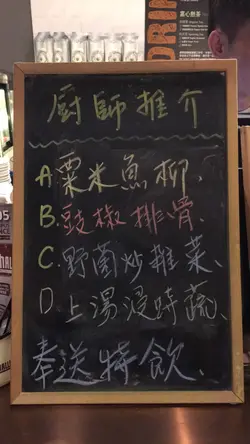 厨師推介
A.粟米魚柳、
B.豉椒排骨、
C.野菌炒雜菜、
D.上湯浸時蔬、
奉送特飲、